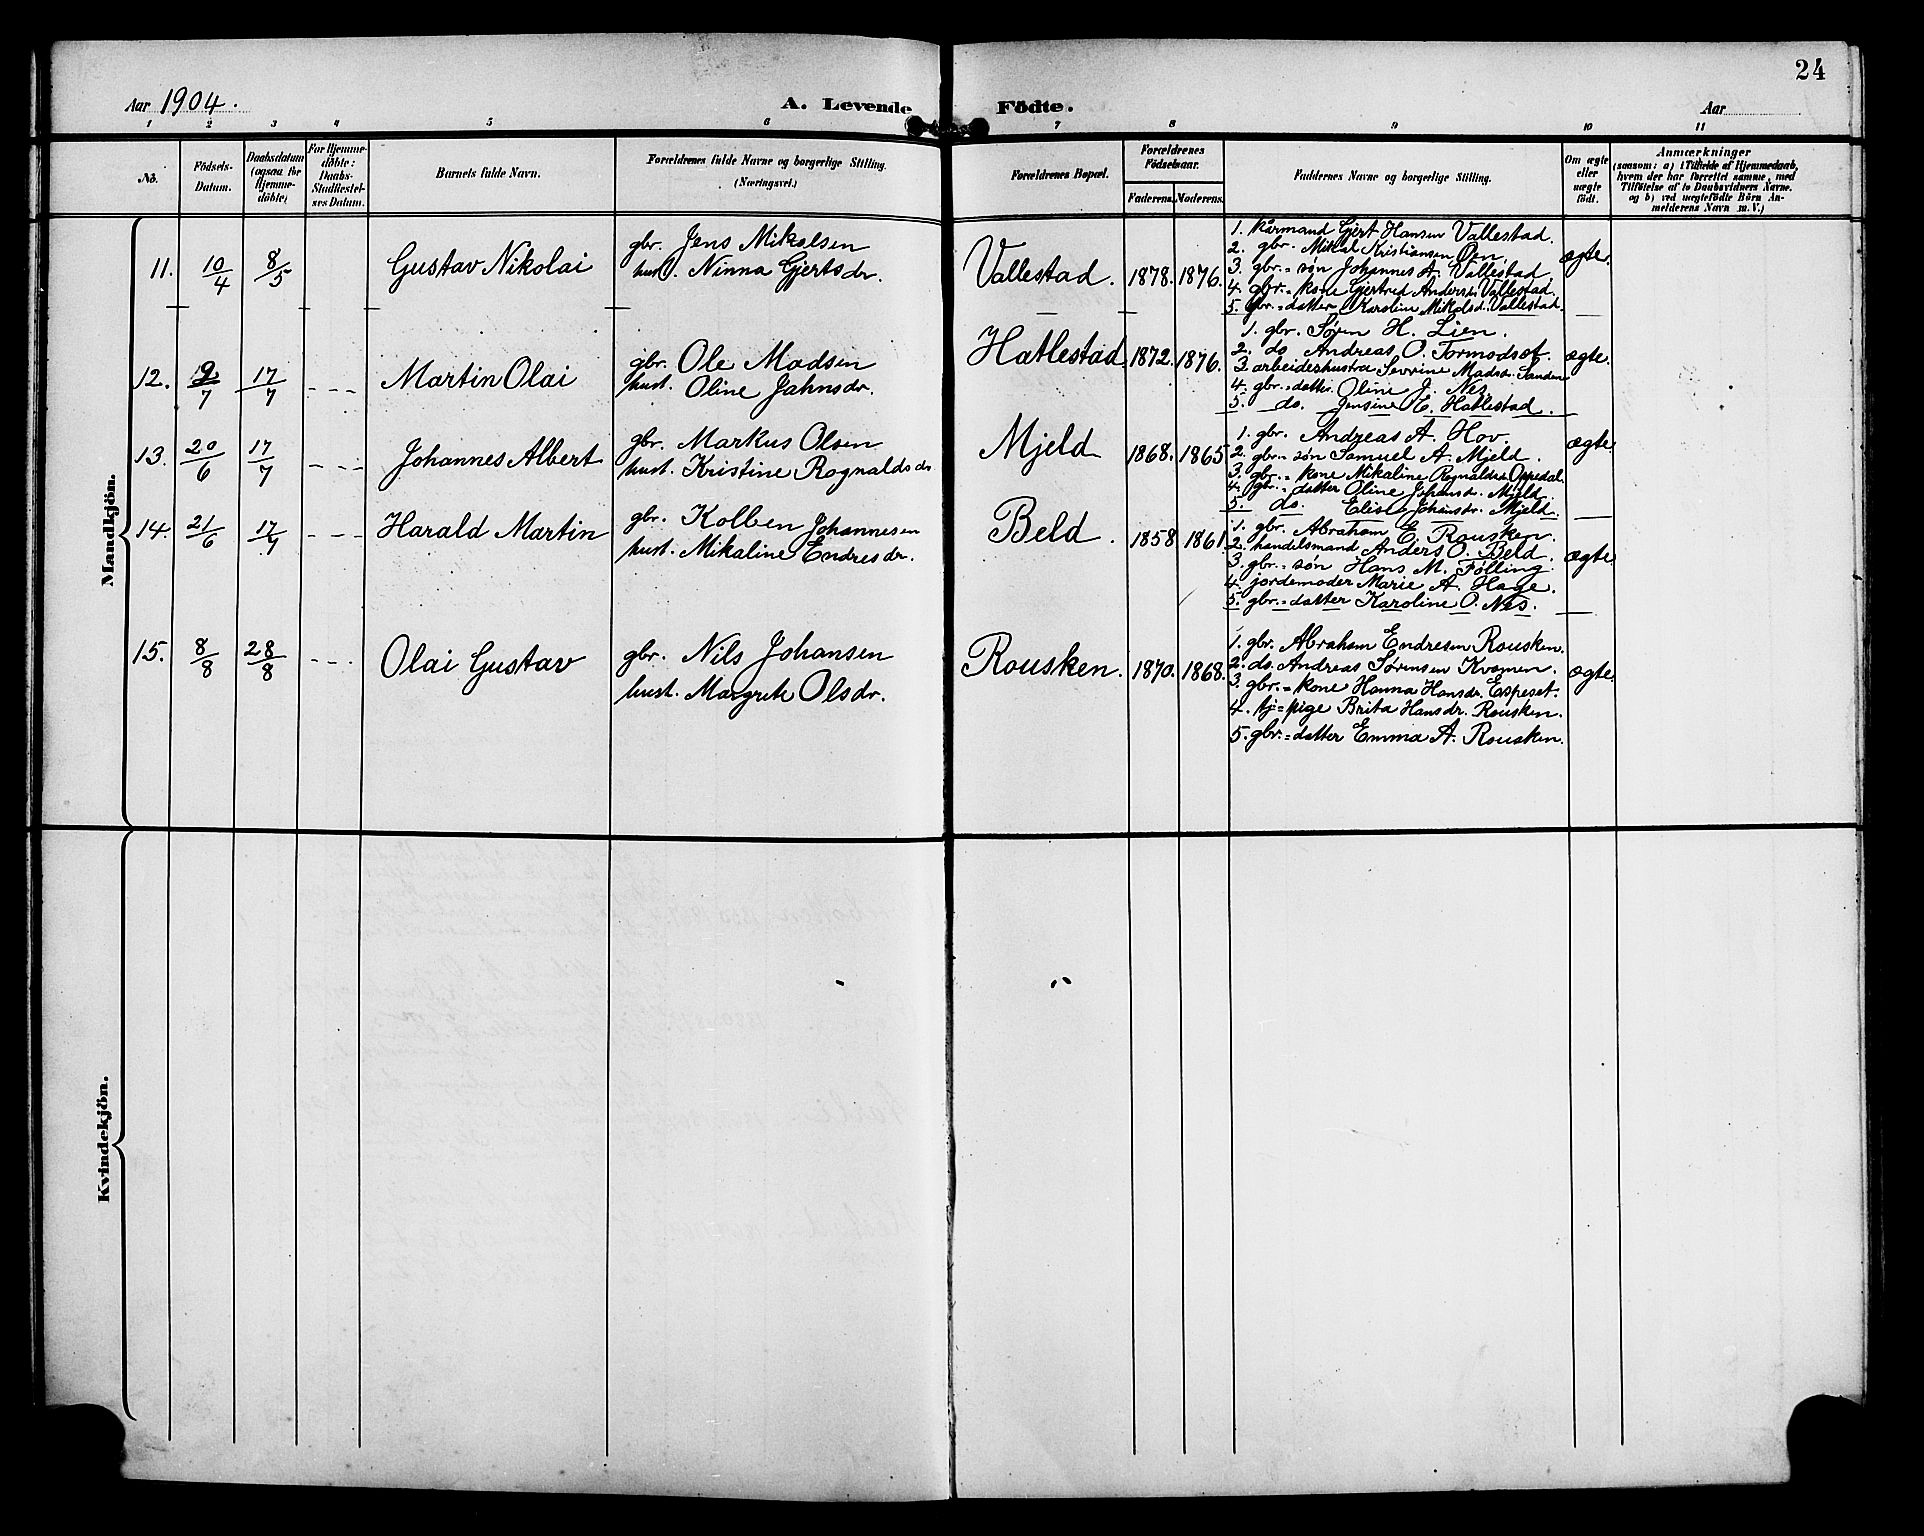 24
Aar 1904.
A. Levende Födte.
Aar
1 2 3 4 5 6 7 8 9 10 11
No.
Födsels-Datum.
Daabsdatum (ogsaa for Hjemme-döbte)
For Hjemme-döbte: Daabs-Stadfæstel-ses Datum.
Barnets fulde Navn.
Forældrenes fulde Navne og borgerlige Stilling. (Næringsvei.)
Forældrenes Bopæl.
Forældrenes Födselsaar.
Faderens. Moderens.
Faddernes Navne og borgerlige Stilling.
Om ægte eller uægte födt.
Anmærkninger
(saasom: a) i Tilfælde af Hjemmedaab,
hvem der har forrettet samme, med
Tilföielse af to Daabsvidners Navne.
og b) ved uægtefödte Börn An-
melderens Navn m. V.)
Mandkjön.
11. 10/4 8/5 Gustav Nikolai
gbr. Jens Mikalsen
hust. Ninna Gjertsdr.
Vallestad. 1878. 1876.
1. Kårmand Gjert Hansen Vallestad.
2. gbr. Mikal Kristiansen Øen.
3. gbr.=søn Johannes A. Vallestad.
4. gbr.=kone Gjertrud Andersd. Vallestad.
5. gbr.=datter Karoline Mikalsd. Vallestad.
ægte.
12. 9/7 17/7 - - - Martin Olai
gbr. Ole Madsen
hust. Oline Jahnsdr.
Hatlestad. 1872. 1876.
1. gbr. Søren H. Lien.
2. do Andreas O. Tormodsæt.
3. arbeiderhustru Sevrine Madsd. Sanden
4. gbr.=datter Oline J. Nes.
5. do. Jensine E. Hatlestad.
ægte.
13. 20/6 17/7 - - - Johannes Albert
gbr. Markus Olsen
hust. Kristine Rognaldsdr.
Mjeld 1868. 1865
1. gbr. Andreas A. Hov.
2. gbr.=søn Samuel A. Mjeld.
3. gbr.=kone Mikaline Rognaldsd. Oppedal.
4. gbr.=datter Oline Johansd. Mjeld.
5. do. Elise Johansdr. Mjeld.
ægte
14. 21/6 17/7 - - - Harald Martin
gbr. Kolben Johannesen
hust. Mikaline Endresdr.
Beld. 1858 1861.
1. gbr. Abraham E. Rousken.
2. handelsmand Anders O. Beld.
3. gbr.=søn Hans M. Følling.
4. jordemoder Marie A. Hage.
5. gbr.=datter Karoline O. Nes.
ægte
15. 8/8 28/8 - - - Olai Gustav
gbr. Nils Johansen
hust. Margrete Olsdr.
Rousken. 1870. 1868.
1. gbr. Abraham Endresen Rousken.
2. do. Andreas Sørensen Kvamen.
3. gbr.=kone Hanna Hansdr. Espeset.
4. tj=pige Brita Hansdr. Rousken.
5. gbr.=datter Emma A. Rousken.
ægte.
Kvindekjön.